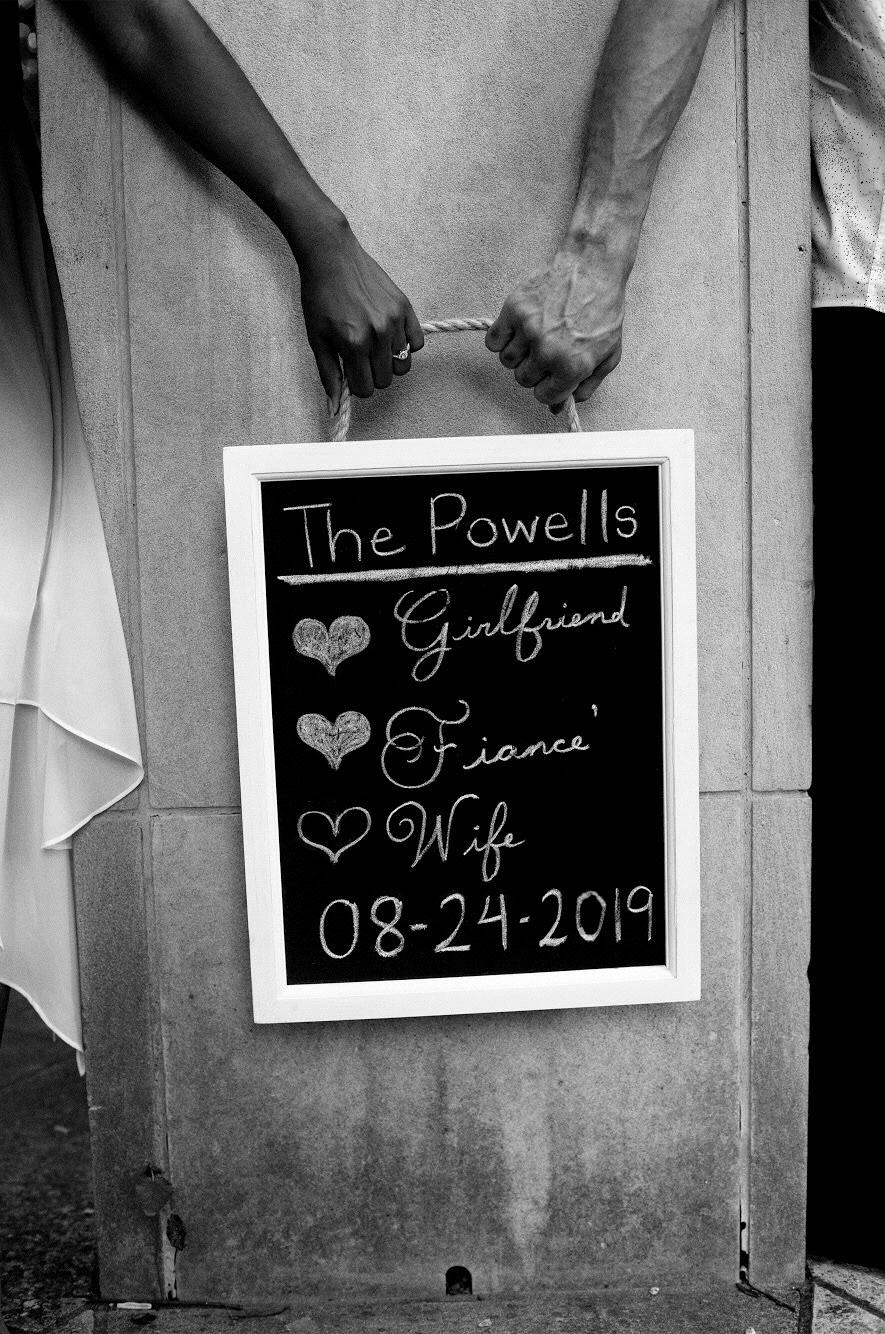 The Powells
Girlfriend
Fiance'
Wife
08-24-2019